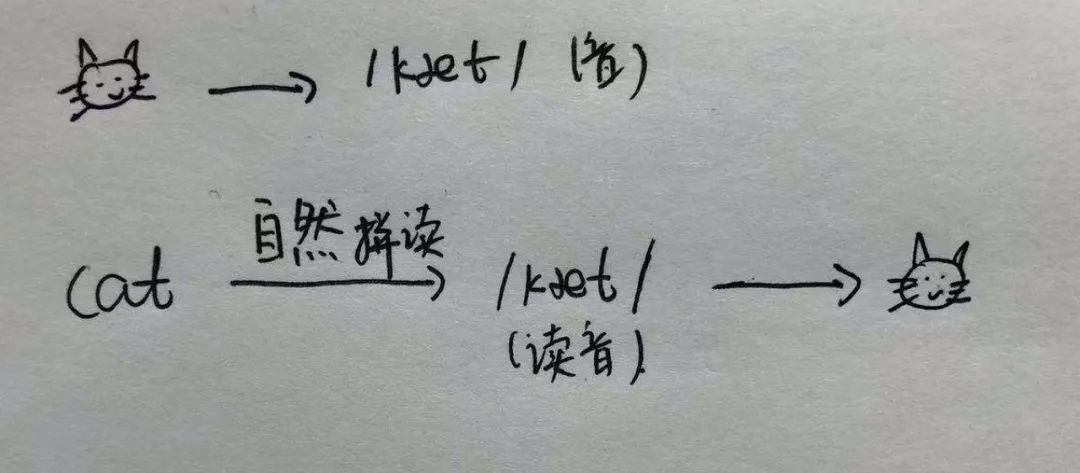 /kæt/ (音)
自然拼读
cat /kæt/
(读音)